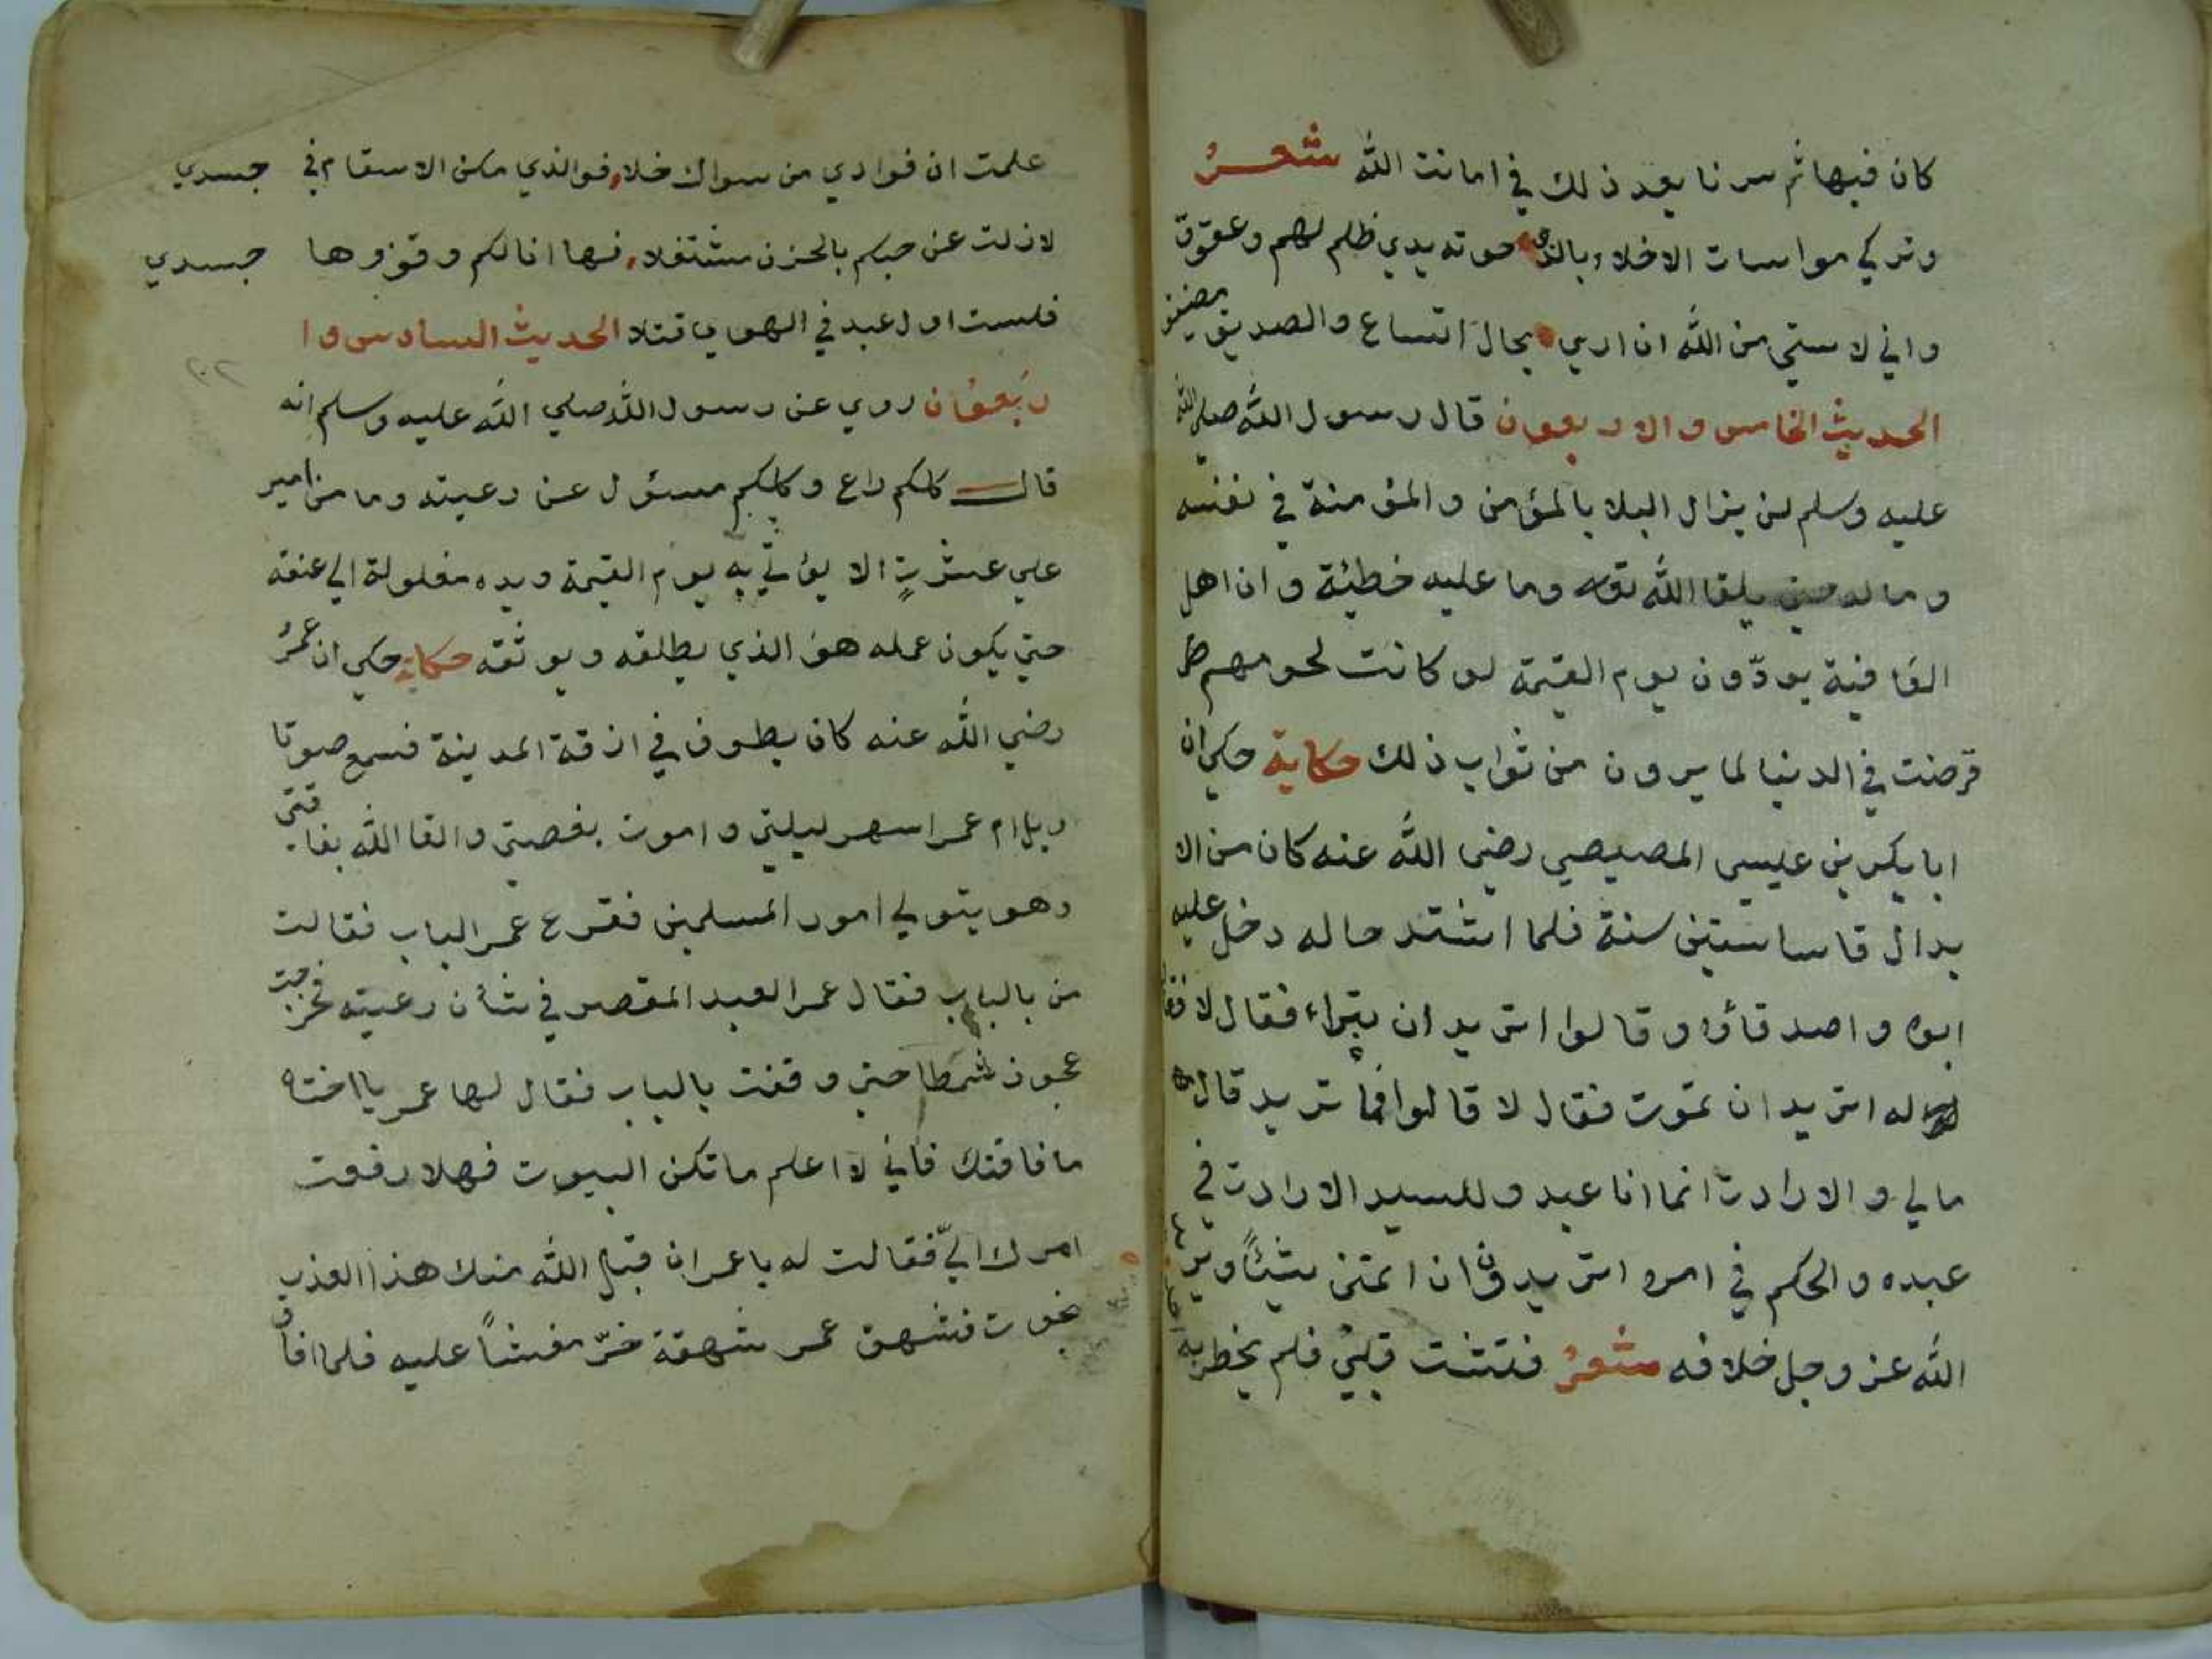 كان فيها ثم سرنا بعد ذلك في امانت الله شعر
وتركي مواسات الاخلاء بالذي حوته يدي ظلم لهم وعقوق
واني لاستحي من الله ان اري بحال اتساع والصديق مضيق
الحديث الخامس والاربعون قال رسول الله صلي الله
عليه وسلم لن يزال البلا بالمؤمن والمؤمنة في نفسه
وماله حتي يلقا الله تعالى وما عليه خطيئة وان اهل
العافية يودّون يوم القيمة لو كانت لحومهم
قرضت في الدنيا لما يرون من ثواب ذلك حكاية حكي ان
ابا بكر بن عليسي المصيصي رضي الله عنه كان من الا
بدال قاسا ستين سنة فلما اشتد حاله دخل عليه
ابوه واصدقاؤه وقالوا اتريد ان تبراء فقال لا فقا
له اتريد ان تموت فقال لا قالوا فما تريد قال
مالي والارادت انما انا عبد وللسيد الارادت في
عبده والحكم في امره اتريدون ان اتمنى شيئاً ويريد
الله عز وجل خلافه شعر فتشت قلبي فلم يخطر به احد
علمت ان فوادي من سواك خلا فوالذي مكن الاسقام في جسدي
لازلت عن حبكم بالحزن مشتغلا فها انا لكم وقوزوها جسدي
فلست اول عبد في الهوي قتلا الحديث السادس وا
ربعون روي عن رسول الله صلي الله عليه وسلم انه
قال كلكم راع وكلكم مسئول عن رعيته وما من امير
علي عشرةٍ الا يؤتي به يوم القيمة ويده مغلولة الي عنقه
حتي يكون عمله هو الذي يطلقه ويوثقه حكاية حكي ان عمر
رضي الله عنه كان يطوف في ازقة المدينة فسمع صوتا
ويل ام عمر اسهر ليلتي واموت بغصتي والقا الله بفاقتي
وهو يتولي امور المسلمين فقرع عمر الباب فقالت
من بالباب فقال عمر العبد المقصر في شأن رعيته فخرجت
عجوز شمطا حتي وقفت بالباب فقال لها عمر يا اختاه
ما فاقتك فاني لا اعلم ما تكن البيوت فهلا رفعت
امرك اليّ فقالت له يا عمر ان قبل الله منك هذا العذر
نجوت فشهق عمر شهقة خرّ مغشاً عليه فلما افاق